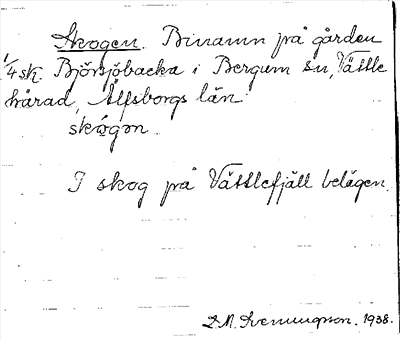 Skogen. Binamn på gården
1/4 sk. Björsjöbacka i Bergum sn, Vättle
härad, Älfsborgs län.
skógən.
I skog på Vättlefjäll belägen.
D.M. Svenungsson. 1938.